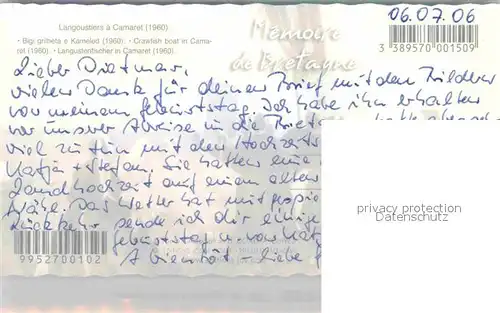 Langoustiers à Camaret (1960)
• Bigi grilheta e Kameled (1960). • Crawfish boat in Cama-
ret (1960). • Langustenfischer in Camaret (1960).
Mémoire
de Bretagne
06.07.06
3 389570 001509
Lieber Dietmar,
vielen Dank für deinen Brief mit den Bildern
von meinem Geburtstag. Ich habe ihn erhalten
vor unserer Abreise in die
viel zu tun mit den Hochzeits
Katja + Stefan. Sie hatten eine
Landhochzeit auf einem alten
Nähe. Das Wetter hat mitgespie
Rückkehr sende ich dir einige
Geburtstag u. von Kat
A bientôt – liebe
9952700102
privacy protection
Datenschutz